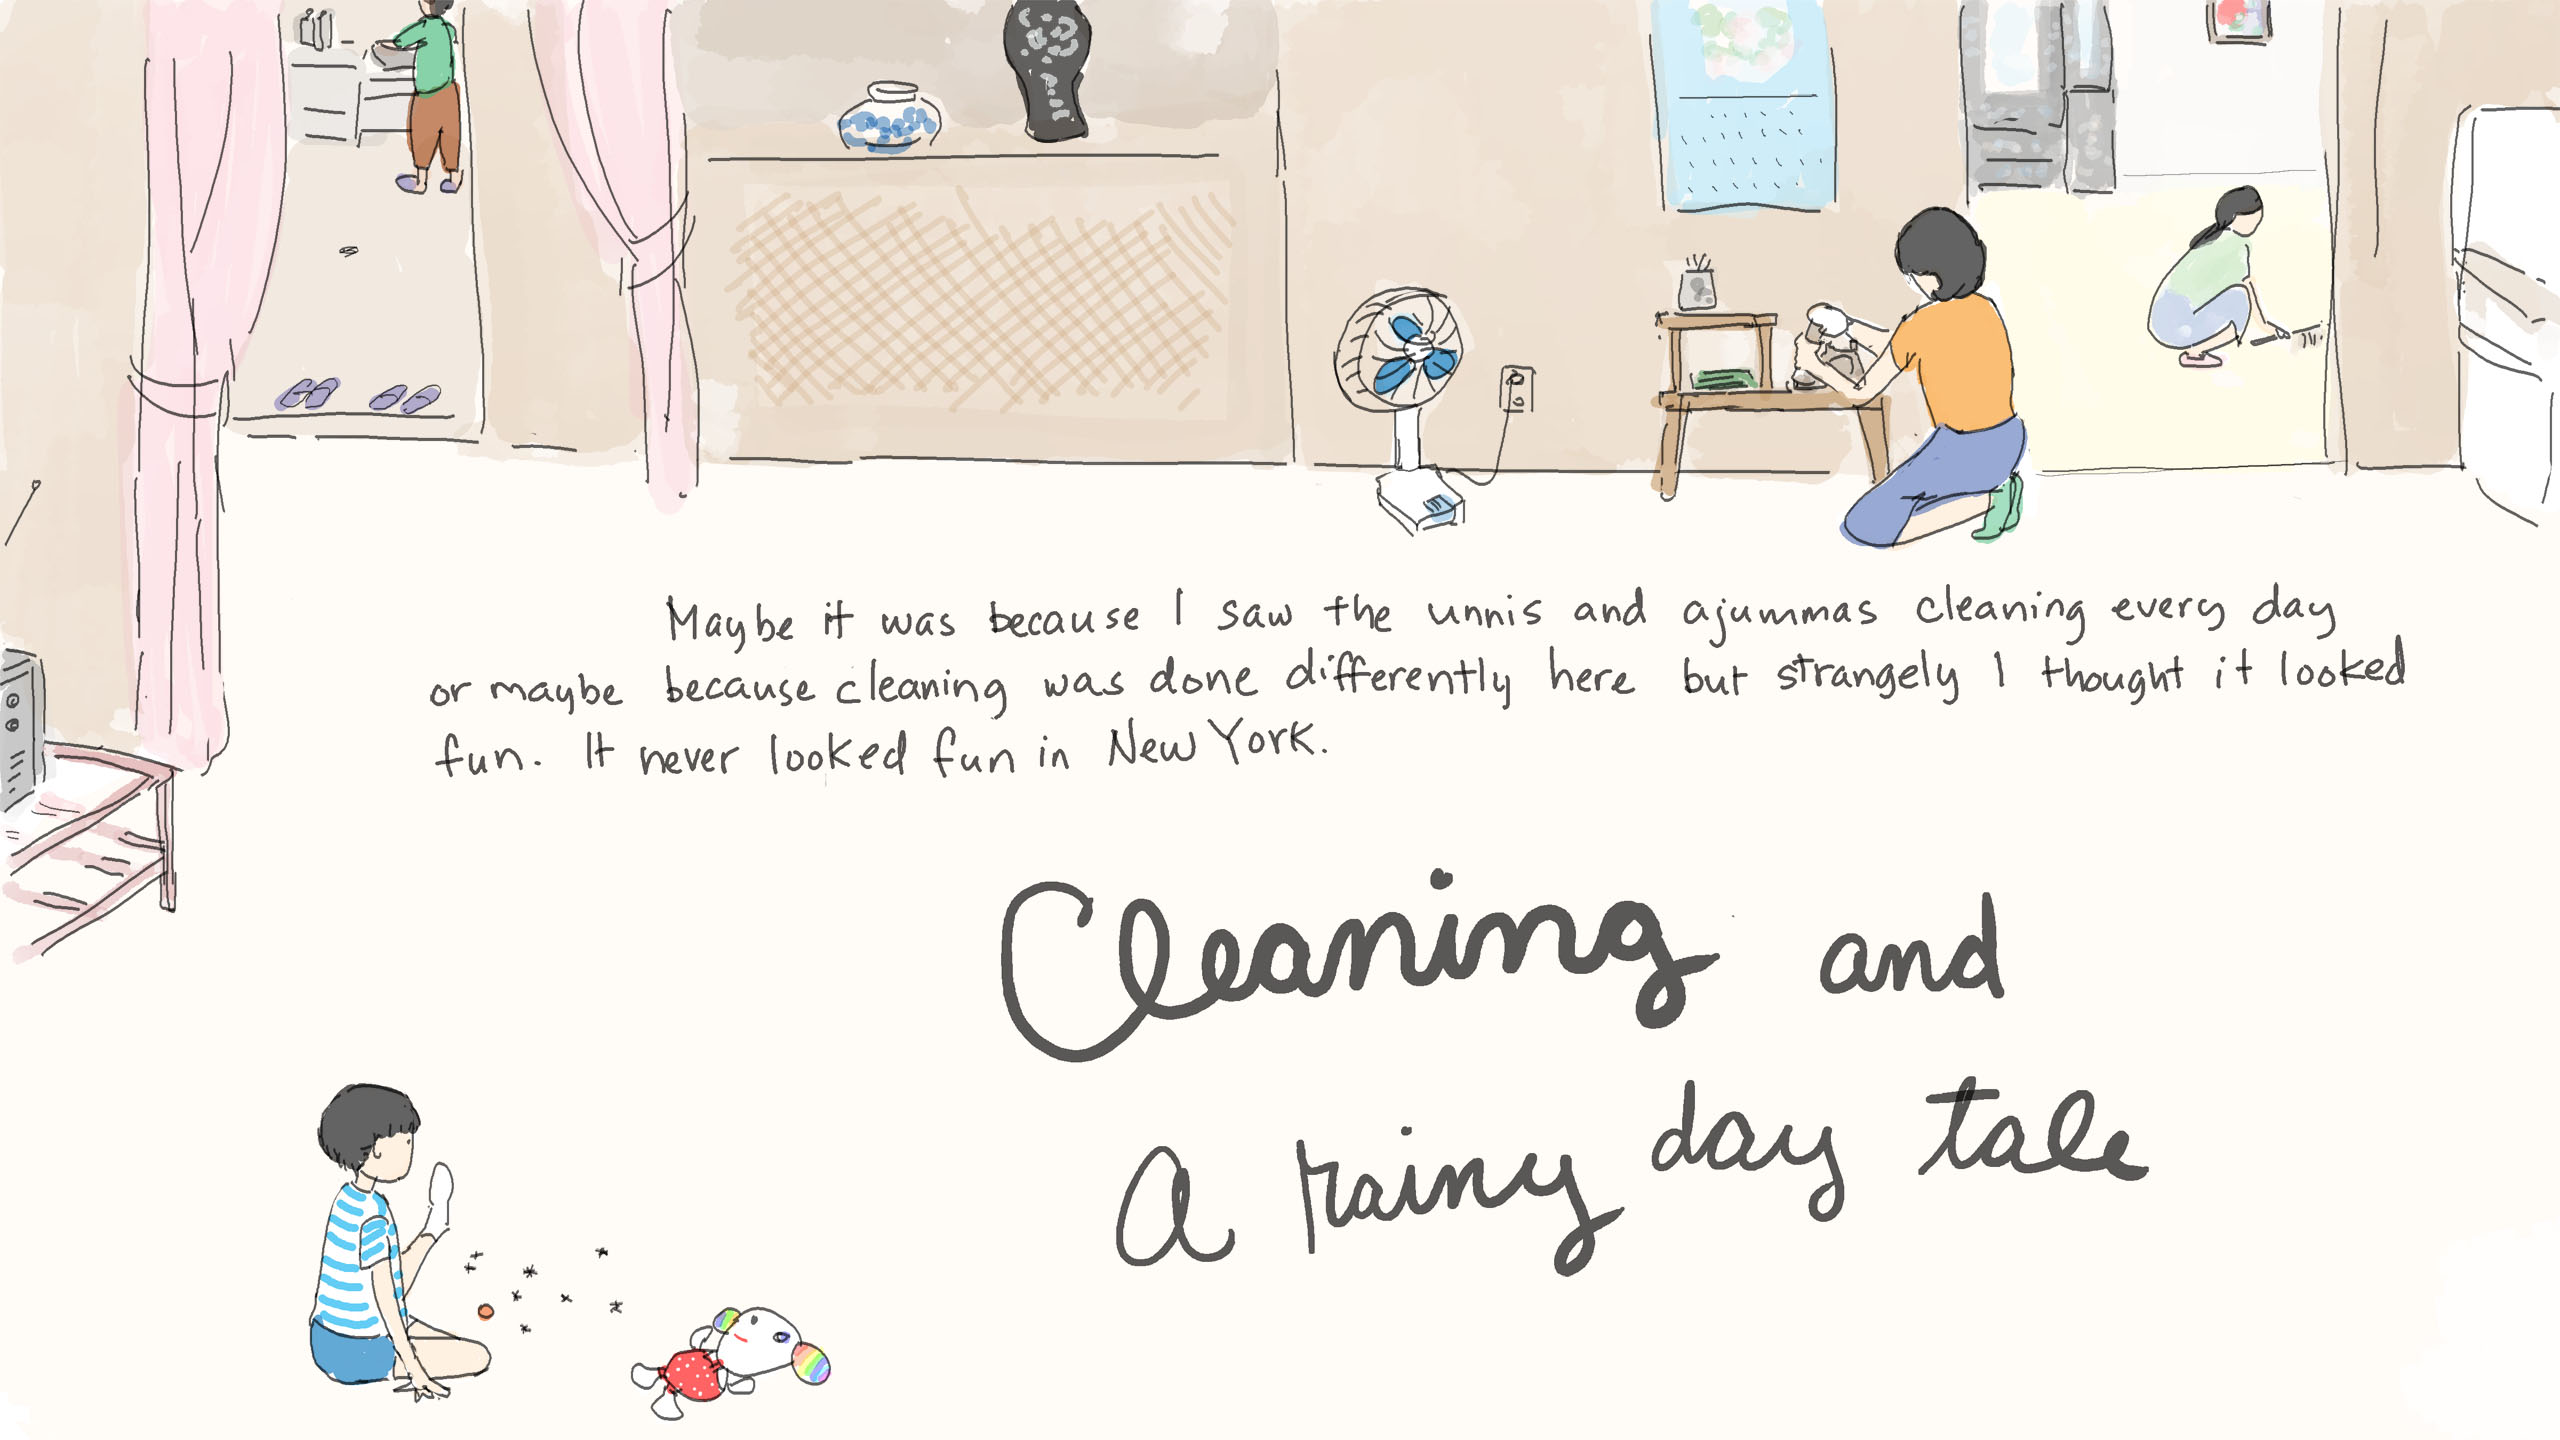 Maybe it was because I saw the unnis and ajummas cleaning every day
or maybe because cleaning was done differently here but strangely I thought it looked
fun. It never looked fun in New York.
Cleaning and
A rainy day tale